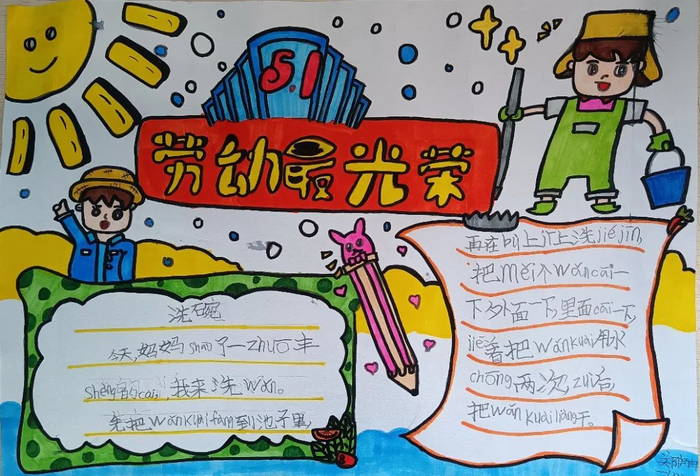 5.1
劳动最光荣
洗碗
今天,妈妈shao了一zhuō丰
shèng的cai,我来洗wǎn。
先把wǎnkuàifàng到池子里
再在 上 上洗jiéjīn,
把měi个wǎncai一
下外面一下,里面cai一下,
jiē着把wǎnkuài用水
chōng两次zuì后
把wǎn kuàiliàng干。